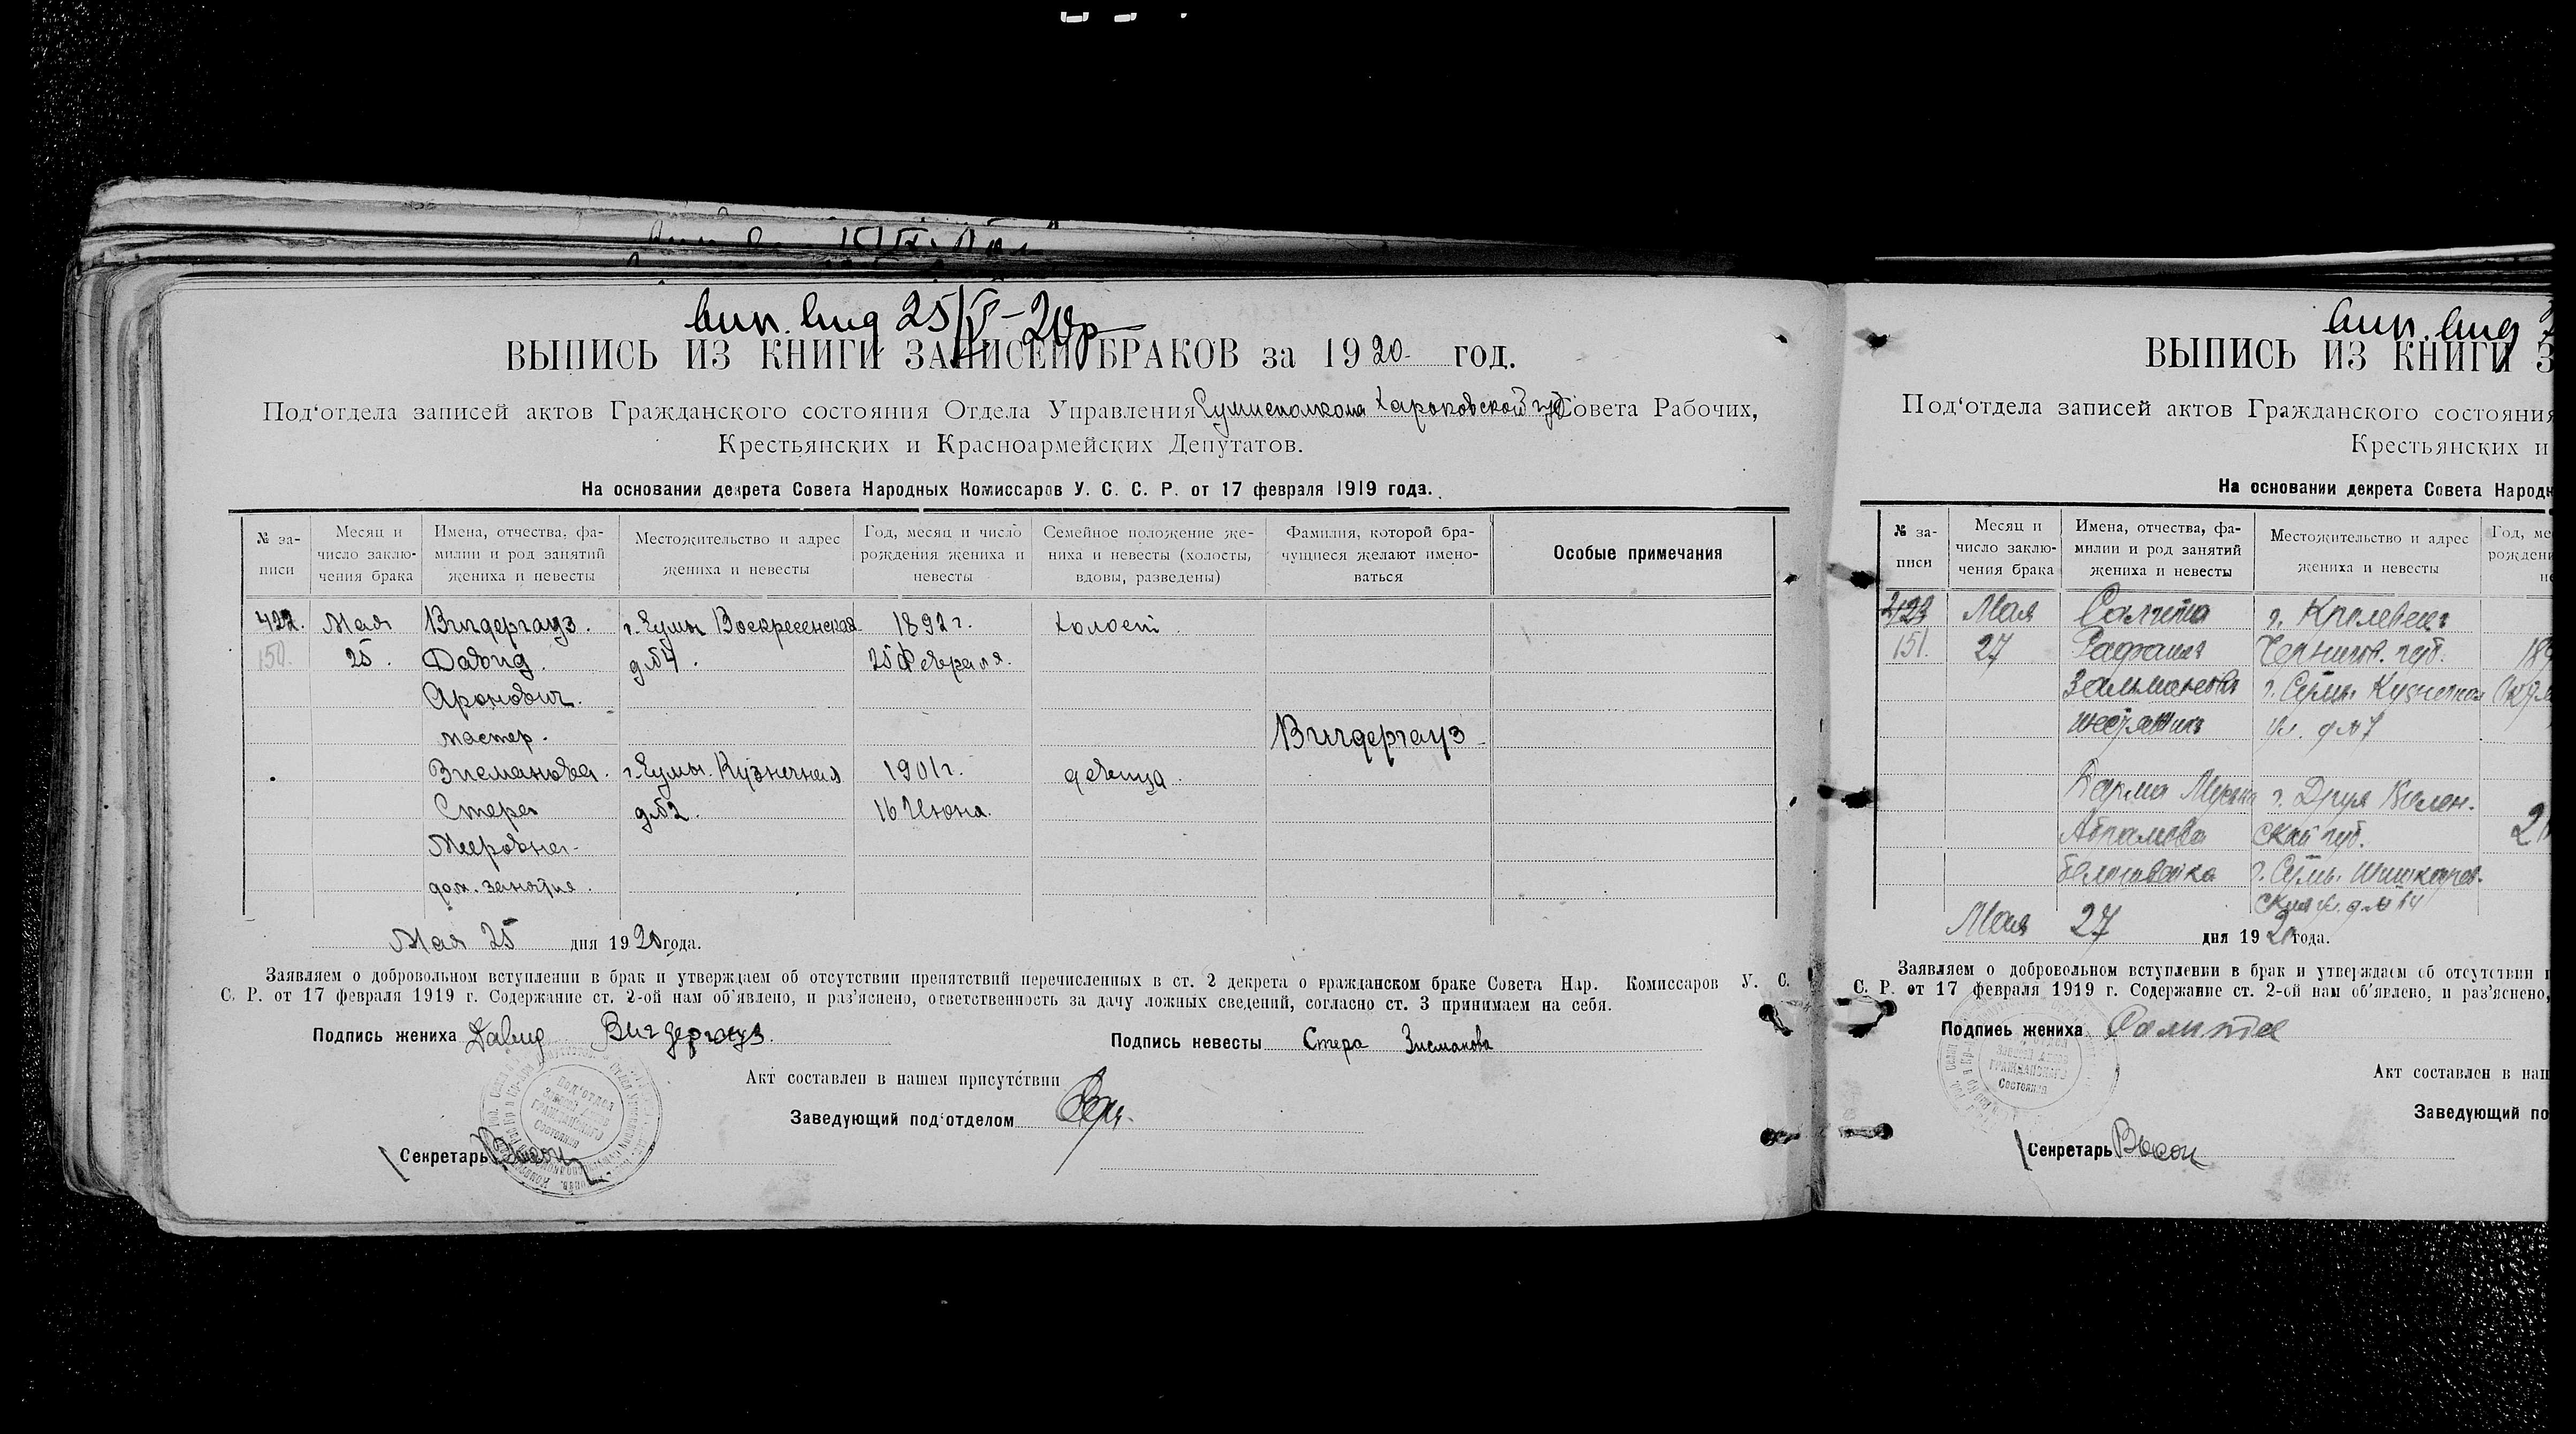 вып. выд 25/V-20р
ВЫПИСЬ ИЗ КНИГИ ЗАПИСЕЙ БРАКОВ за 1920 год.
Под‘отдела записей актов Гражданского состояния Отдела Управления Сумисполкома Харьковской губ Совета Рабочих,
Крестьянских и Красноармейских Депутатов.
На основании декрета Совета Народных Комиссаров У. С. С. Р. от 17 февраля 1919 года.
№ за-
писи
Месяц и
число заклю-
чения брака
Имена, отчества, фа-
милии и род занятий
жениха и невесты
Местожительство и адрес
жениха и невесты
Год, месяц и число
рождения жениха и
невесты
Семейное положение же-
ниха и невесты (холосты,
вдовы, разведены)
Фамилия, которой бра-
чущиеся желают имено-
ваться
Особые примечания
422. Мая Вигдергауз. г. Сумы Воскресенская 1892 г. холост
150. 25. Давид. д№4. 25 Февраля.
Аронович.
мастер.
Вигдергауз
Зисманова. г. Сумы. Кузнечная 1901 г. девица.
Стера д№2. 16 Июня.
Мееровна
дом. занятия.
Мая 25 дня 1920 года.
Заявляем о добровольном вступлении в брак и утверждаем об отсутствии препятствий перечисленных в ст. 2 декрета о гражданском браке Совета Нар. Комиссаров У. С.
С. Р. от 17 февраля 1919 г. Содержание ст. 2-ой нам об‘явлено, и раз‘яснено, ответственность за дачу ложных сведений, согласно ст. 3 принимаем на себя.
Подпись жениха Давид Вигдергауз. Подпись невесты Стера Зисманова
Акт составлен в нашем присутствии
Заведующий под‘отделом
Секретарь
Под‘отдел
Записей Актов
ГРАЖДАНСКОГО
Состояния
вып. выд
ВЫПИСЬ ИЗ КНИГИ З
Под‘отдела записей актов Гражданского состояния
Крестьянских и
На основании декрета Совета Народн
№ за-
писи
Месяц и
число заклю-
чения брака
Имена, отчества, фа-
милии и род занятий
жениха и невесты
Местожительство и адрес
жениха и невесты
Год, ме
рождени
не
423 Мая Салита г. Кролевец
151. 27 Рафаил Чернигов. губ. 189
г. Сумы Кузнечная
ул. д№7
Мусья г. Друя Вилен.
Абрамова ской губ. 2
белошвейка г. Сумы.
ская ул. д№14
Мая 27 дня 1920 года.
Заявляем о добровольном вступлении в брак и утверждаем об отсутствии п
С. Р. от 17 февраля 1919 г. Содержание ст. 2-ой нам об‘явлено, и раз‘яснено,
Подпись жениха Салита
Акт составлен в наш
Заведующий по
Секретарь
под‘отдел
Записей Актов
ГРАЖДАНСКОГО
Состояния